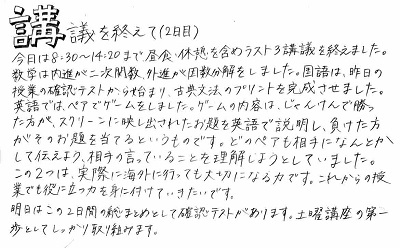 講議を終えて(2日目)
今日は8:30〜14:20まで昼食・休憩を含めラスト3講議を終えました。
数学は内進が二次関数、外進が因数分解をしました。国語は、昨日の
授業の確認テストから始まり、古典文法のプリントを完成させました。
英語では、ペアでゲームをしました。ゲームの内容は、じゃんけんで勝っ
た方が、スクリーンに映し出されたお題を英語で説明し、負けた方
がそのお題を当てるというものです。どのペアも相手になんとか
して伝えよう、相手の言っていることを理解しようとしていました。
この2つは、実際に海外に行っても大切になる力です。これからの授
業でも役に立つ力を身に付けていきたいです。
明日はこの2日間の総まとめとして確認テストがあります。土曜講座の第一
歩としてしっかり取り組みます。